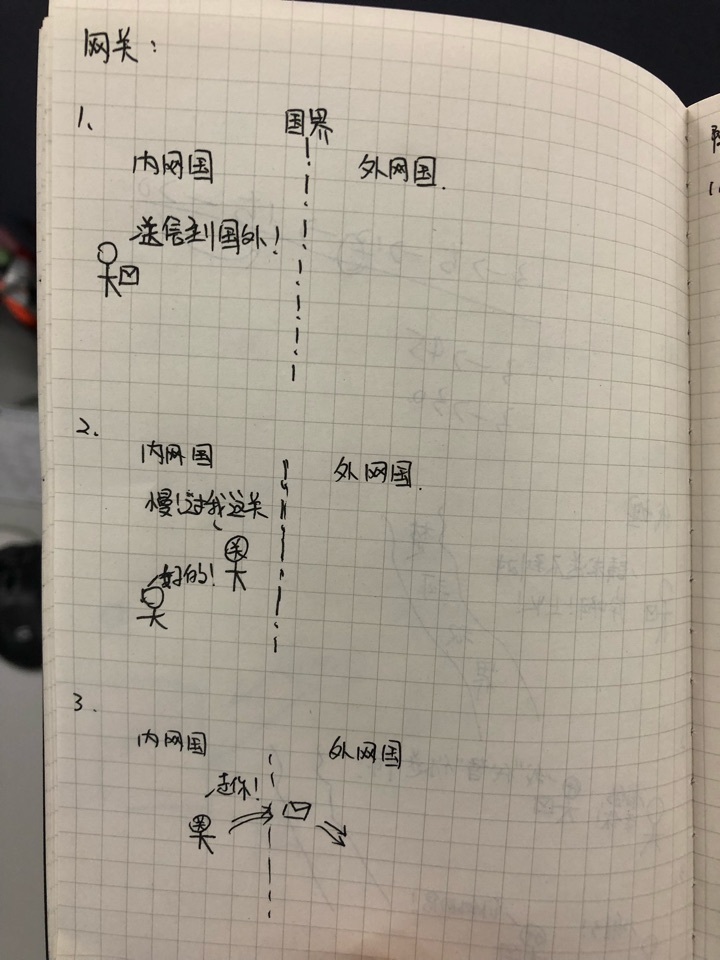 网关：
1、
国界
内网国
外网国.
送信到国外！
2.
内网国
外网国.
慢！过我这关
关
好的！
3.
内网国
外网国
走你！
关